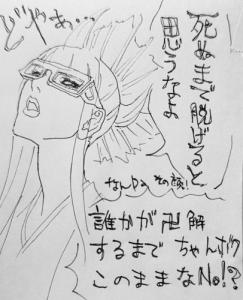 どやぁ…
死ぬまで脱げると
思うなよ
なんじゃ その顔!
誰かが卍解
するまで ちゃんボク
このままなNo!?